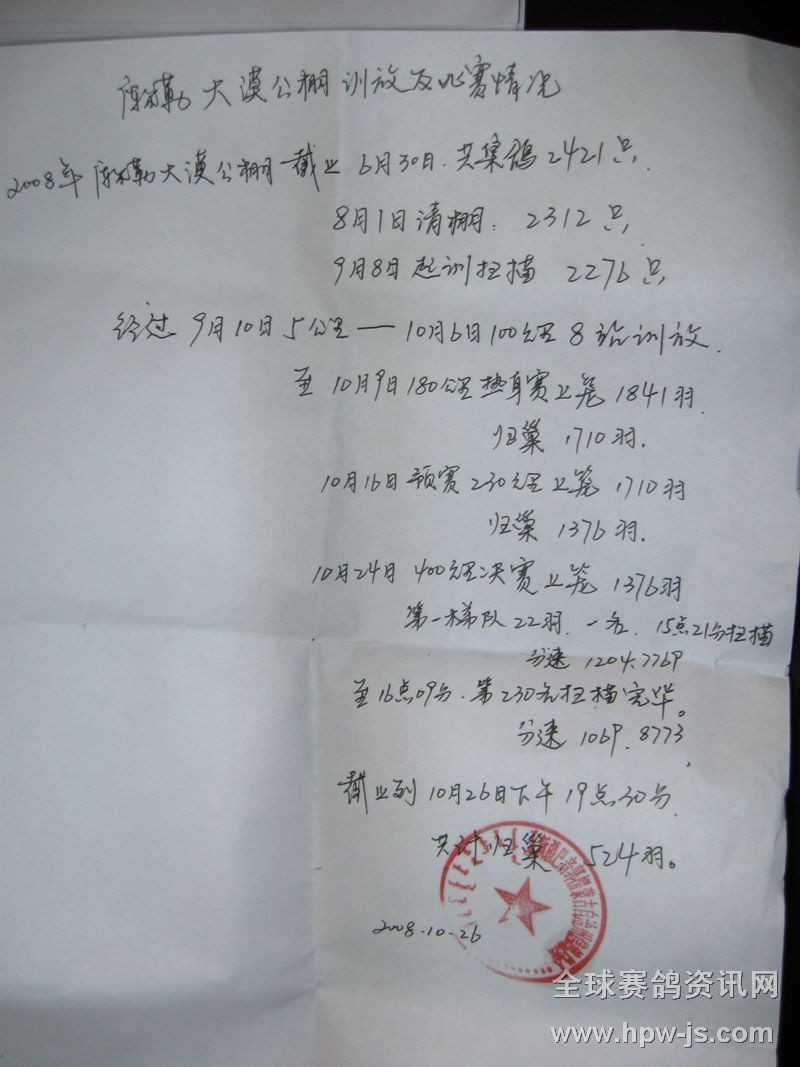 库尔勒大漠公棚训放及比赛情况
2008年库尔勒大漠公棚截止6月30日.共集鸽2421只.
8月1日清棚: 2312只
9月8日起训扫描 2276只
经过9月10日5公里——10月6日100公里8站训放.
至10月9日180公里热身赛上笼1841羽.
归巢1710羽.
10月16日预赛230公里上笼1710羽
归巢1376羽.
10月24日400公里决赛上笼1376羽
第一梯队22羽.一名.15点21分扫描
分速1204.7769
至16点09分.第230名扫描完毕。
分速1069.8773
截止到10月26日下午19点30分
共计归巢524羽。
2008.10.26
全球赛鸽资讯网
www.hpw-js.com